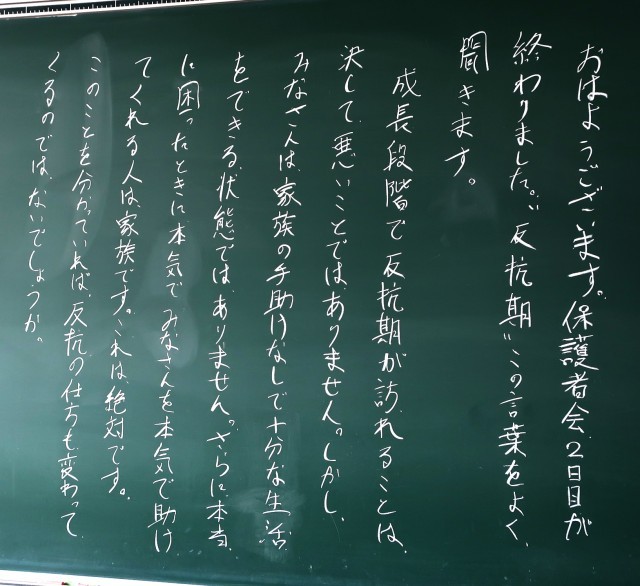 おはようございます。保護者会、2日目が
終わりました。"反抗期"この言葉をよく、
聞きます。
成長段階で反抗期が訪れることは、
決して、悪いことではありません。しかし、
みなさんは、家族の手助けなしで十分な生活
をできる、状態ではありません。さらに、本当
に困ったときに、本気でみなさんを本気で助け
てくれる人は家族です。これは、絶対です。
このことを分かっていれば、反抗の仕方も変わって
くるのでは、ないでしょうか。